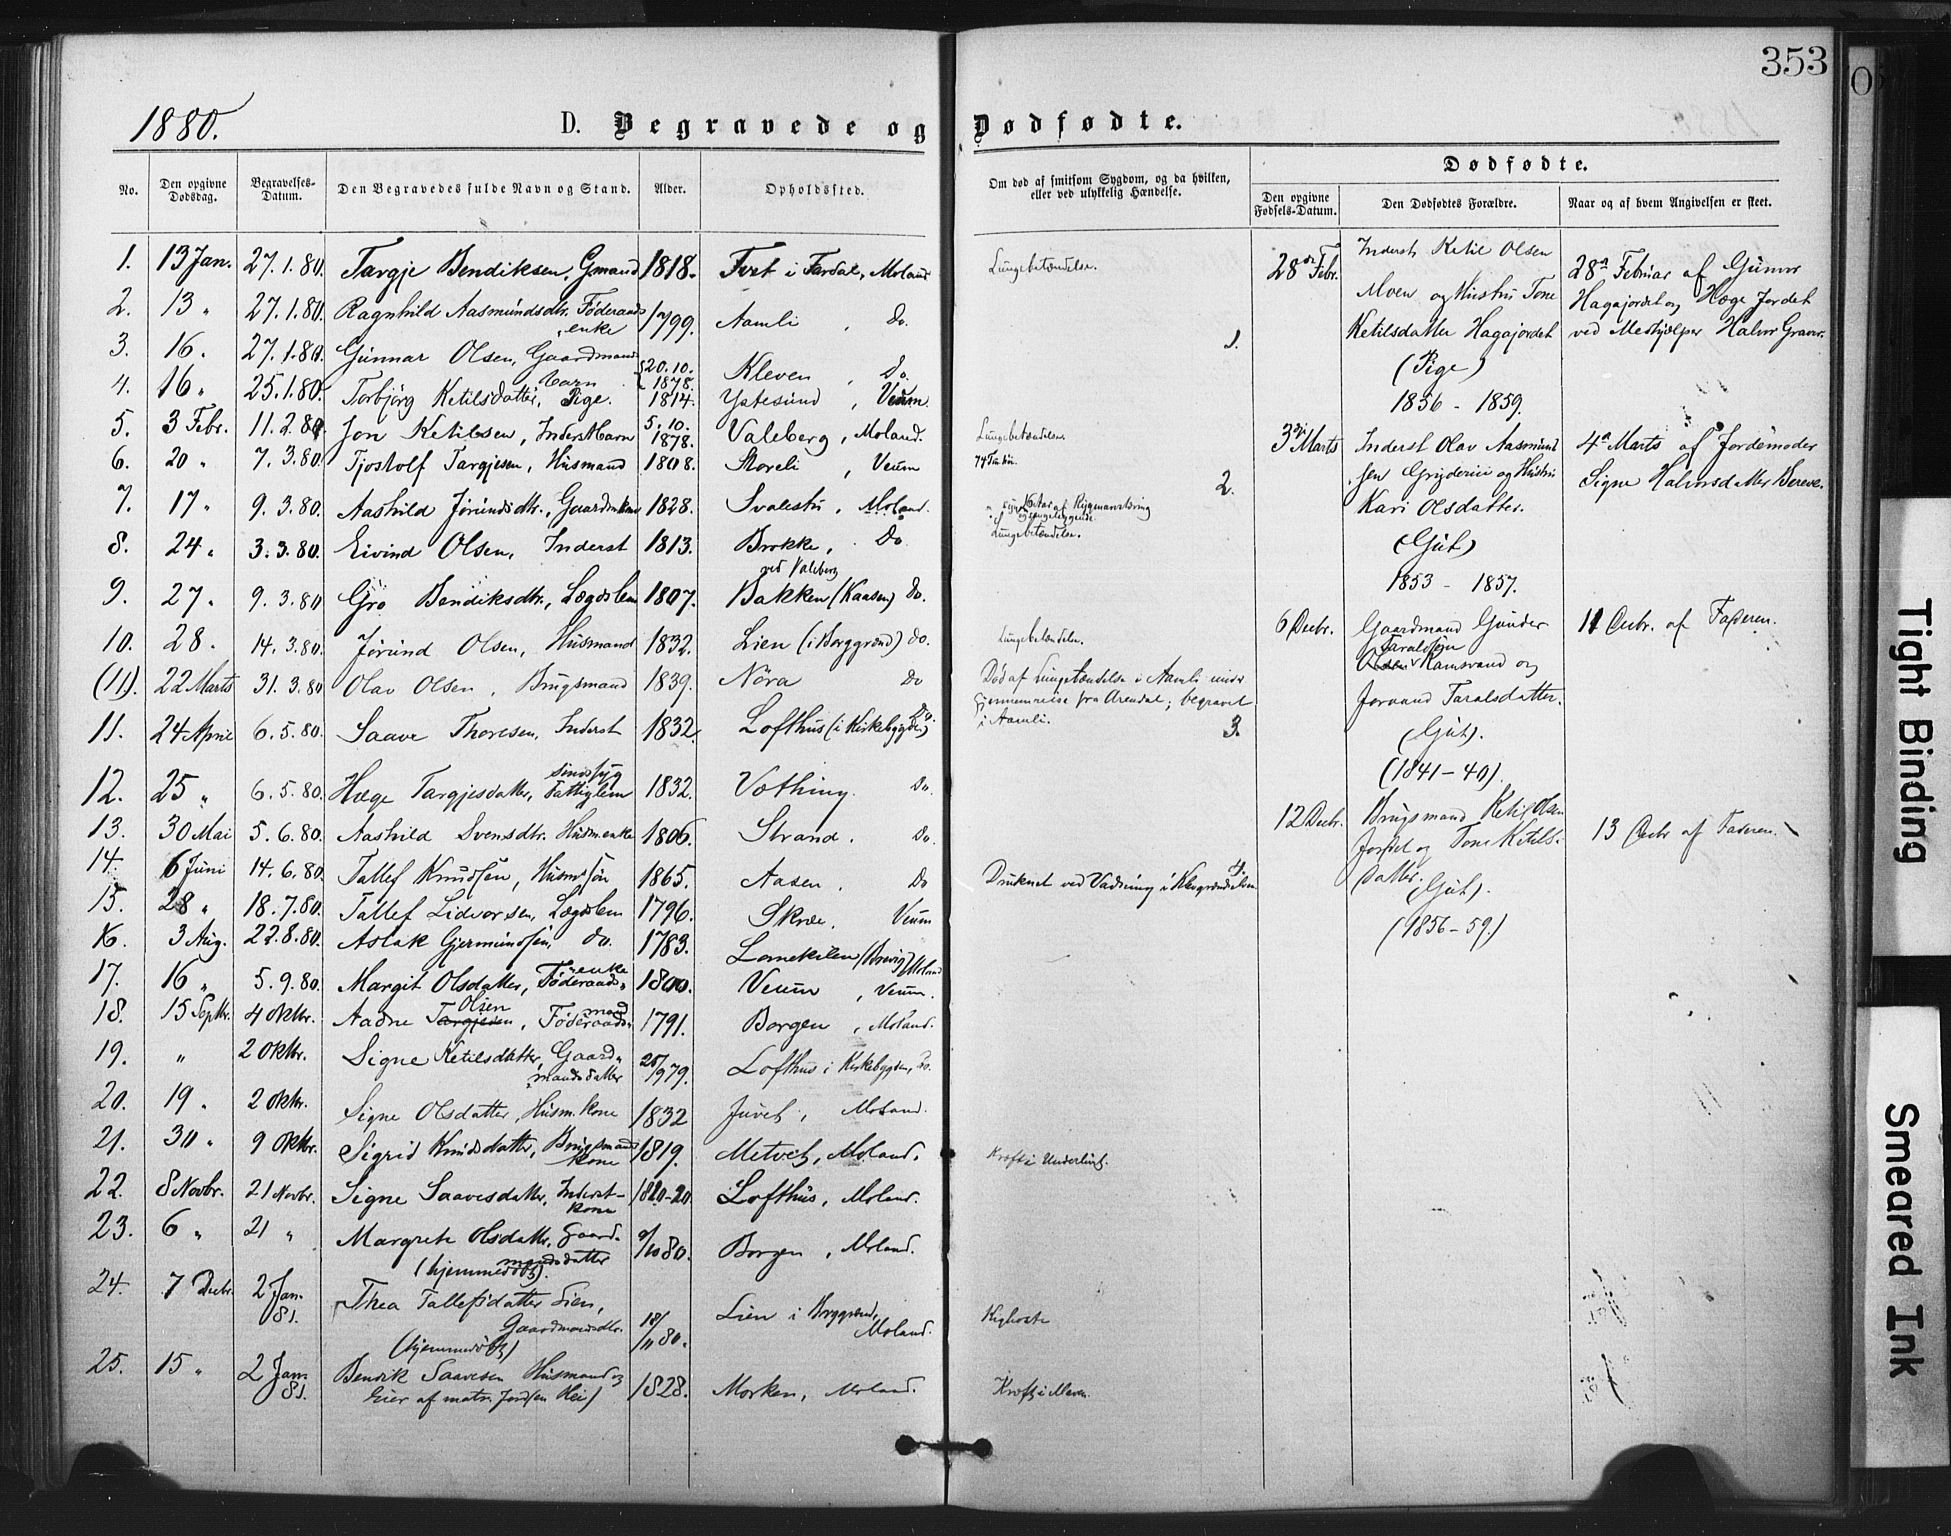 353
1880.
D. Begravede og Dødfødte.
No.
Den opgivne Dødsdag.
Begravelses-Datum.
Den Begravedes fulde Navn og Stand.
Alder.
Opholdssted.
Om død af smitsom Sygdom, og da hvilken, eller ved ulykkelig Hændelse.
Dødfødte.
Den opgivne Fødsels-Datum.
Den Dødfødtes Forældre.
Naar og af hvem Angivelsen er skeet.
1. 13 Jan. 27.1.80. Targje Bendiksen, Gmand 1818. i Fardal, Moland Lungebetændelse.
2. 13 " 27.1.80. Ragnhild Aasmundsdtr. Føderaadsenke 1799. Aamli, Do.
3. 16. 27.1.80. Gunnar Olsen, Gaardmandsbarn 20.10.1878. Kleven, Do.
4. 16 " 25.1.80. Torbjørg Ketilsdatter, Pige. 1814. Ystesund, Veum.
5. 3 Febr. 11.2.80. Jon Ketilsen, Inderstbarn 5.10.1878. Valeberg, Moland. Lungebetændelse.
6. 20 " 7.3.80. Tjostolf Targjesen, Husmand 1808. Storeli, Veum
7. 17 " 9.3.80. Aashild Jørundsdtr., 1828. Svalestu, Moland.
8. 24 " 3.3.80. Eivind Olsen, Inderst 1813. Brokke, Do. Lungebetændelse.
9. 27 " 9.3.80 Gro Bendiksdtr., Lægdslem 1807. Bakken (Kaasen) ved Valeberg Do.
10. 28. 14.3.80. Jørund Olsen, Husmand 1832. Lien (i Berggrend) do. Lungebetændelse.
(11). 22 Marts 31.3.80 Olav Olsen, Brugsmand 1839. Nora Do Død af Lungetændelse i Aamli under
Gjennemreise fra Arendal; begravet
i Aamli.
11. 24 April 6.5.80. Saave Thoresen, Inderst 1832. Lofthus (i Kirkebygden) Do.
12. 25 " 6.5.80. Hæge Targjesdatter, sindssyg Fattiglem 1832. Vothing. Do.
13. 30 Mai 5.6.80. Aashild Svensdtr. Husmenke 1806. Strand. Do.
14. 6 Juni 14.6.80. Tallef Knudsen, Husmsøn 1865. Aasen. Do Druknet ved Vadning i
15. 28 " 18.7.80. Tallef Lidvorsen, Lægdslem 1796. Skræ. Veum
16. 3 Aug. 22.8.80. Aslak Gjermundsen, do. 1783. Lomekilen (Brevig) Moland
17. 16 " 5.9.80. Margit Olsdatter, Føderaadsenke 1800. Veum, Veum.
18. 15 Septbr. 4 Oktbr. Aadne Targjesen Olsen, Føderaadsmand 1791. Borgen, Moland.
19. " 2 Oktbr. Signe Ketilsdatter, Gaardmandsdatter 25/9 79. Lofthus i Kirkebygden, Do.
20. 19 " 2 Oktbr. Signe Olsdatter, Husm. kone 1832 Juvet, Moland.
21. 30 " 9 Oktbr. Sigrid Knudsdatter, Brugsmandskone 1819. Metveit, Moland. Kræft i Underlivet.
22. 8 Novbr. 21 Novbr. Signe Saavesdatter, Inderstkone 1820-20 Lofthus, Moland.
23. 6 " 21 " Margrete Olsdatter, Gaardmandsdatter (hjemmedøbt). /10 80. Borgen, Moland.
24. 7 Decbr. 2 Jan. 81. Thea Tallefsdatter Lien,
Gaardmandsdtr. (hjemmedøbt) 18/11 80. Lien i Berggrend, Moland. Kighoste
25. 15 " 2 Jan. 81. Bendik Saavesen Husmand og
Eier af 1828. Morken, Moland. Kræft i Maven
1. 28de Febr. Inderst Ketil Olsen
Moen og Hustru Tone
Ketilsdatter Hagajordet
(Pige)
1856 - 1859.
28de Februar af Gunvor
Hagajordet og Hæge Jordet
ved Medhjælper Halvor Graver.
2. 3die Marts Inderst Olav Aasmund
sen og Hustru
Kari Olsdatter.
(Gut)
1853 - 1857.
4de Marts af Jordemoder
Signe Halvorsdatter Bereve.
3. 6 Decbr. Gaardmand Gunder
Olsen Taraldsen Ramsvand og
Joraand Taralsdatter.
(Gut).
(1841-40).
11 Decbr. af Faderen.
4. 12 Decbr. Brugsmand Ketil Olsen
Jordet og Tone Ketils-
datter. (Gut).
(1856-59.)
13 Decbr af Faderen.
Tight Binding
Smeared Ink